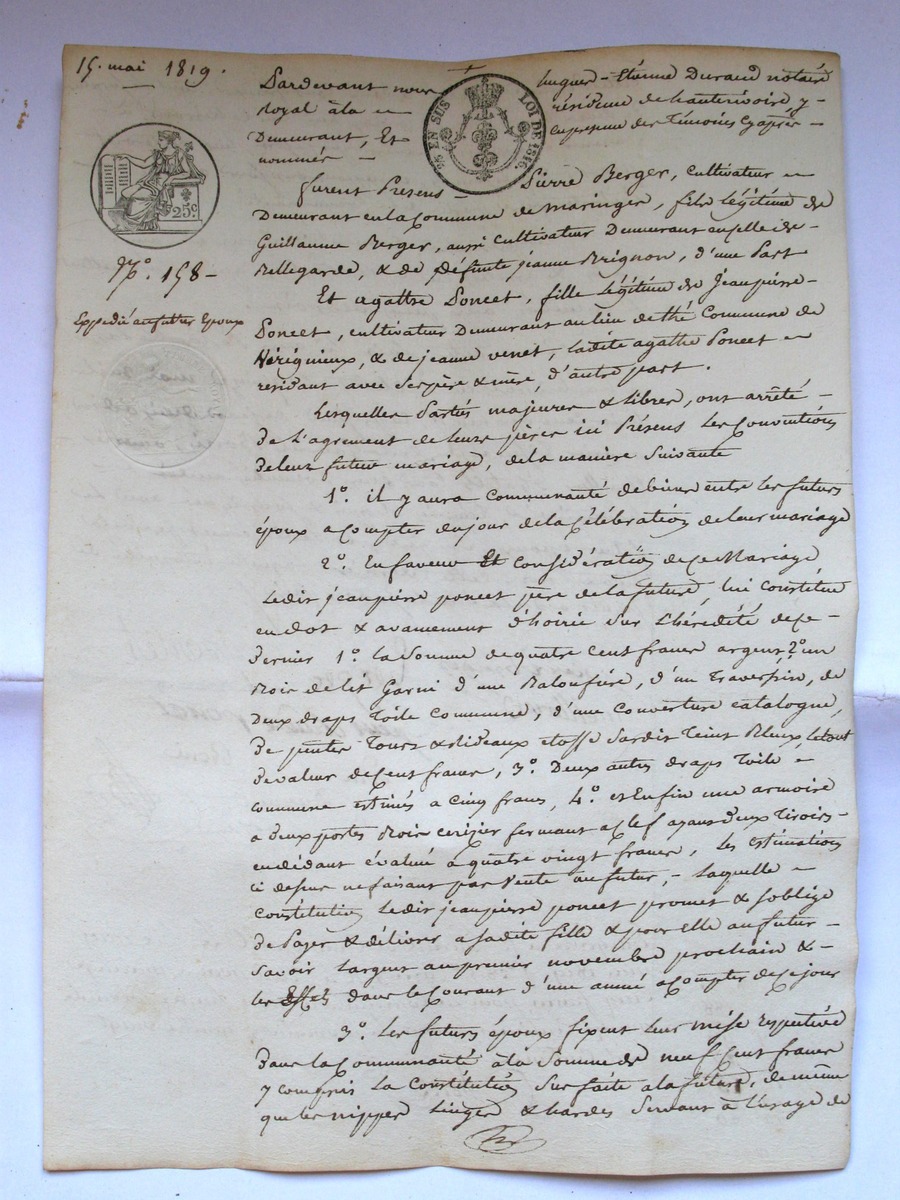 15. mai 1819.
Pardevant nous hugues-Etienne Durand notaire
royal à la résidence de hauterivoire, y
Demeurant, Et en presence des Témoins cy après
nommés
25 EN SUS LOI DE 1816.
25c
N.° 158
Expedié aux futurs Epoux
furent Présens Pierre Berger, cultivateur
Demeurant en la Commune de maringes, fils légitime de
Guillaume Berger, aussi cultivateur Demeurant en celle de
Bellegarde, & de défunte jeanne Brignon, d'une Part
Et agathe Poncet, fille légitime de jeanpierre
Poncet, cultivateur Demeurant au lieu de thé Commune de
Vérignieux, & de jeanne venet, ladite agathe Poncet
résidant avec ses père & mère, d'autre part.
Lesquelles Parties majeures & libres, ont arrêté
de l'agrément de leurs pères ici Présens les Conventions
de leur futur mariage, de la manière suivante
1.° il y aura communauté de biens entre les futurs
époux a compter du jour de la Célébration de leur mariage
2.° En faveur Et considération de ce Mariage
Ledit jeanpierre poncet père de la future, lui constitue
en dot & avancement d'hoirie sur l'hérédité de ce
Dernier 1.° la Somme de quatre cent francs argent 2.° un
Bois de lit Garni d'une Baloufière, d'un Traversin, de
Deux draps Toile Commune, d'une Couverture catalogue,
de pentes Tours & Rideaux étoffe sardit Teint Bleux, le tout
de valeur de Cent francs, 3.° Deux autres draps Toile
commune estimés a cinq francs, 4.° et Enfin une armoire
a deux portes Bois cerisier fermant a clef ayant deux Tiroirs
en dédant évalué a quatre vingt francs, les estimations
ci dessus ne faisant pas Vente au futur, Laquelle
Constitution Ledit jeanpierre poncet promet & s'oblige
de Payer & délivrer a sadite fille & pour elle au futur
Savoir l'argent au premier novembre prochain &
les Effets dans le Courant d'une année a compter de ce jour
3.° Les futurs époux fixent leur mise respective
dans la Communauté à la Somme de neuf Cent francs
y compris la Constitution sus faite a la future, de même
que les nippes linges & hardes servant à l'usage de